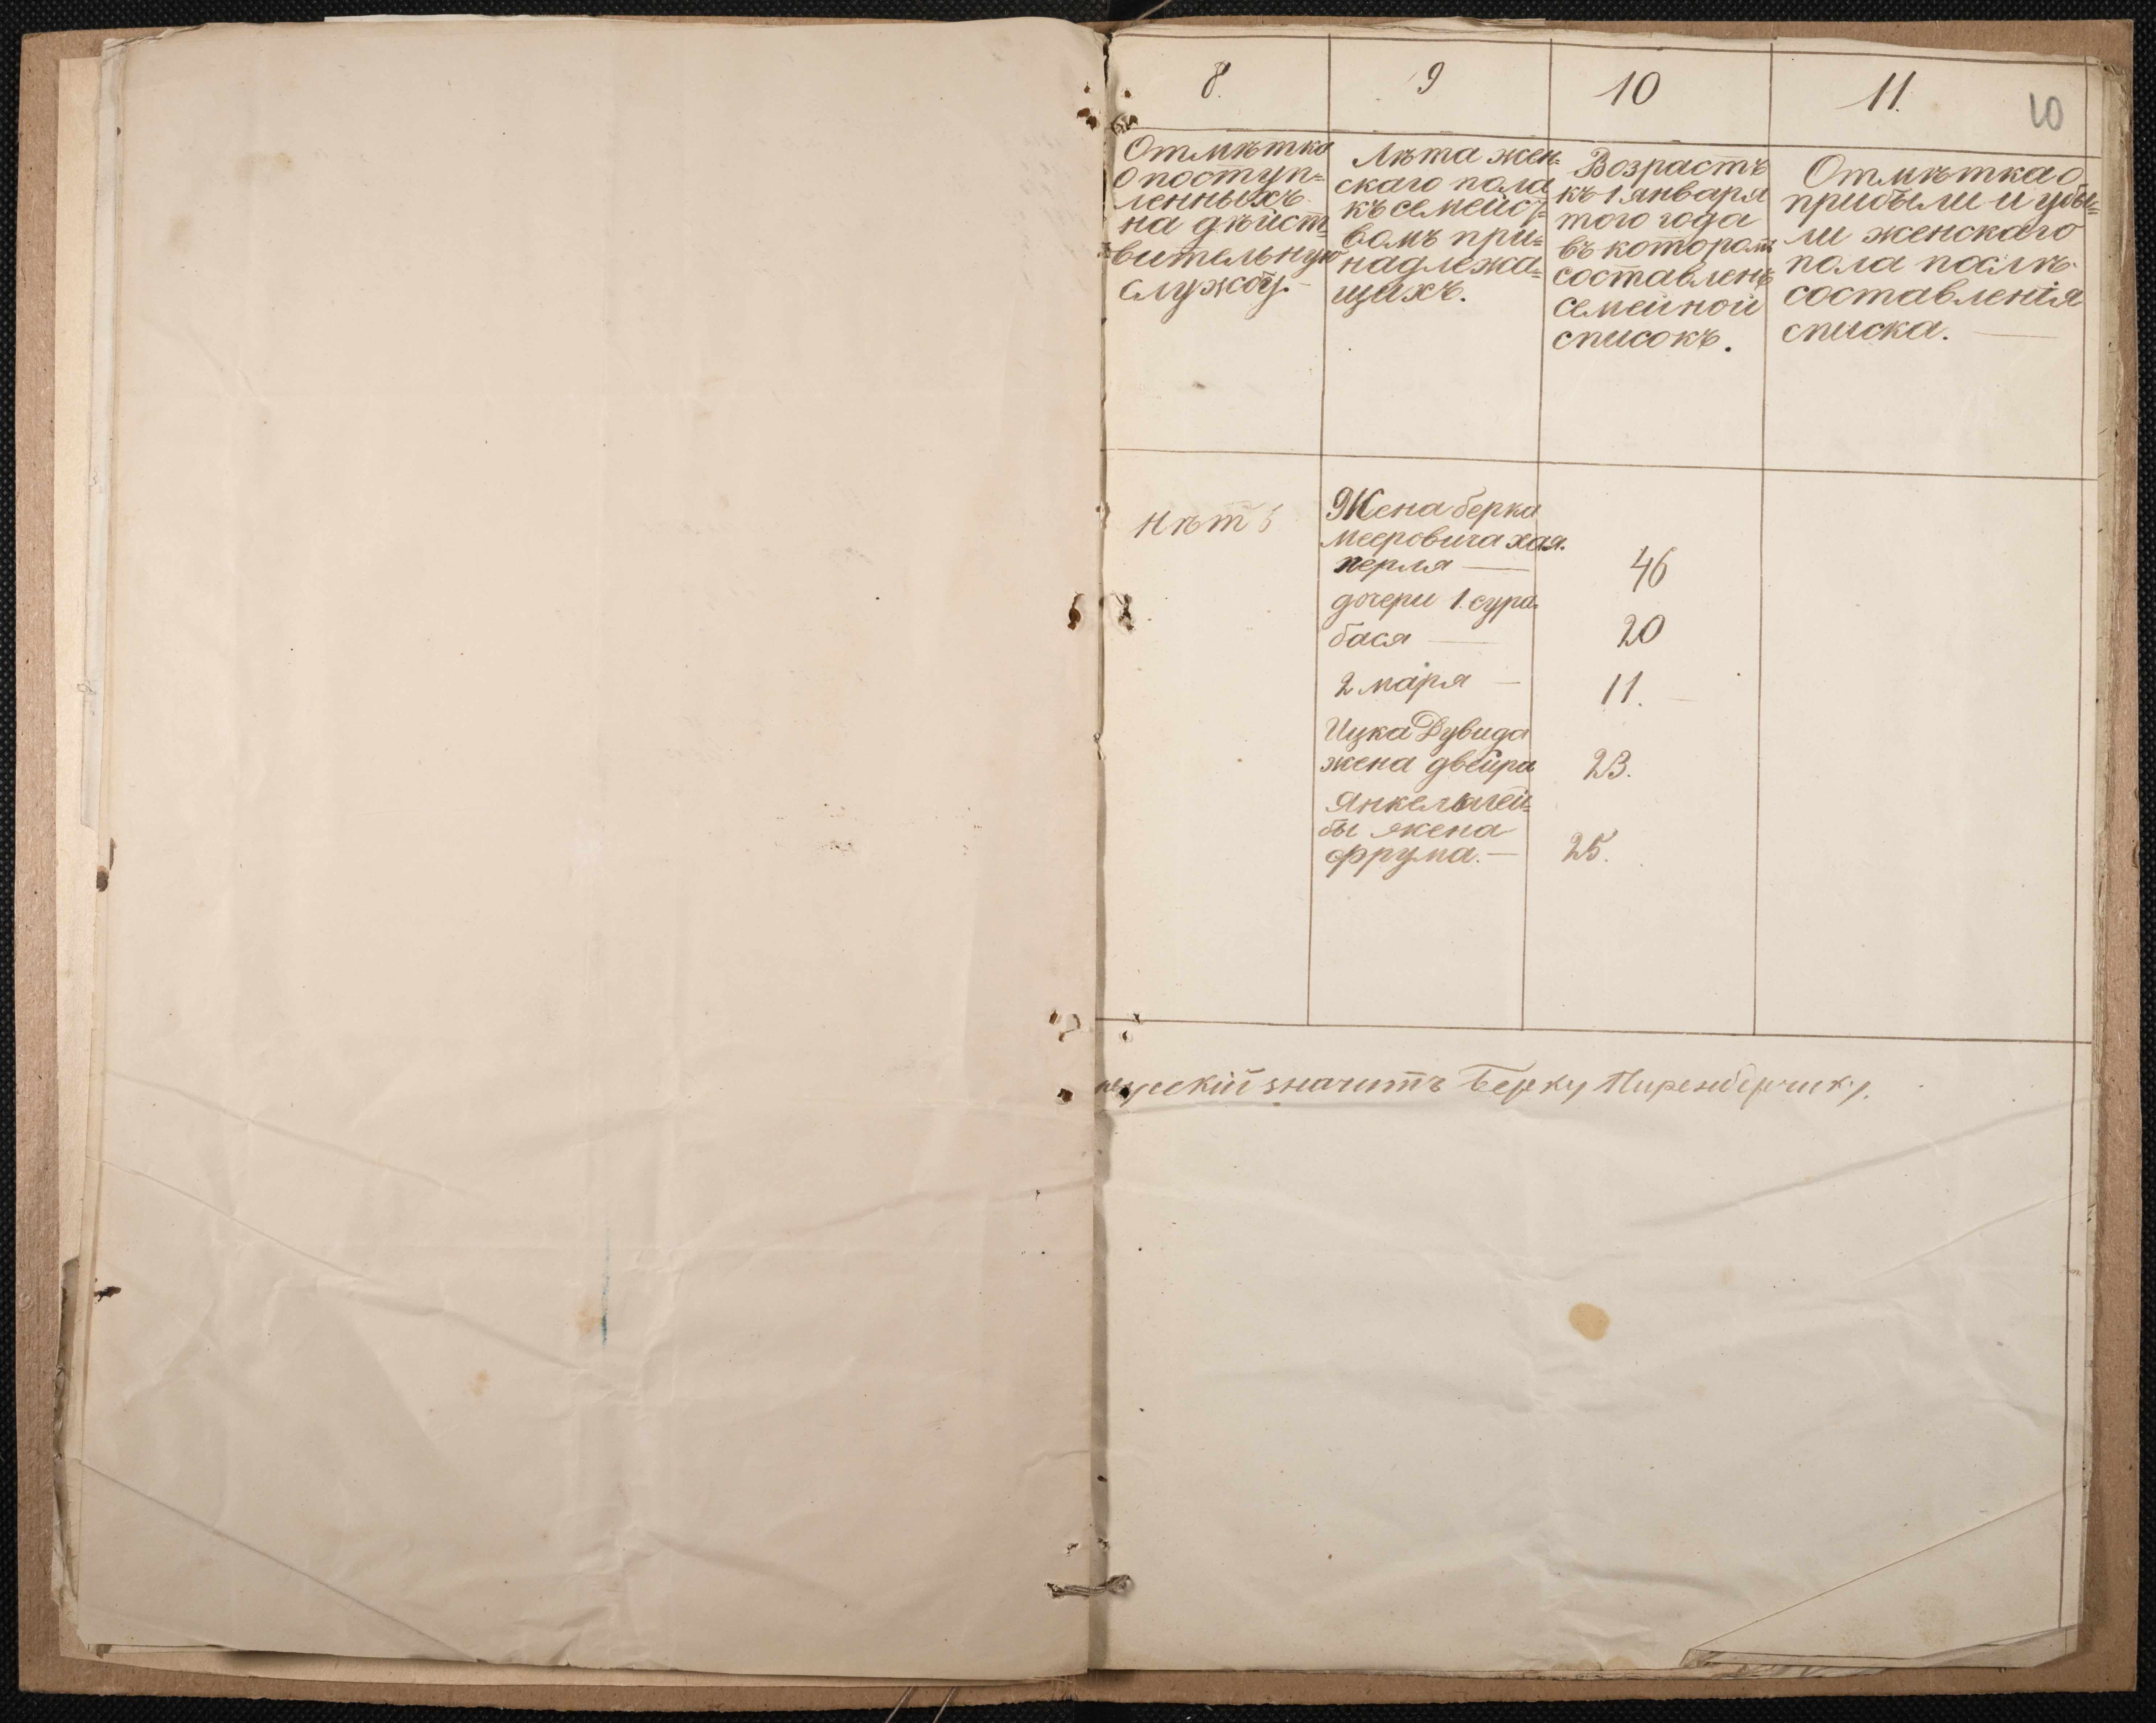 8. 9 10 11. 10
Отмѣтка
о поступ=
ленныхъ
на дѣйст=
вительную
службу.
Лѣта жен=
скаго пола
къ семейст=
вомъ при=
надлежа=
щихъ.
Возрастъ
къ 1 января
того года
въ которомъ
составленъ
семейной
списокъ.
Отмѣтка о
прибыли и убы=
ли женскаго
пола послѣ
составленія
списка.
нѣтъ
Жена берка
мееровича хая
перля — 46
дочери 1. сура
бася — 20
2 маря — 11.
Ицка Дувида
жена двейра 23.
Янкельлей=
бы жена
фрума. — 25.
значитъ Берку